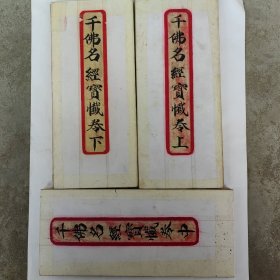 千佛名經寶懺卷上
千佛名經寶懺卷下
千佛名經寶懺卷中